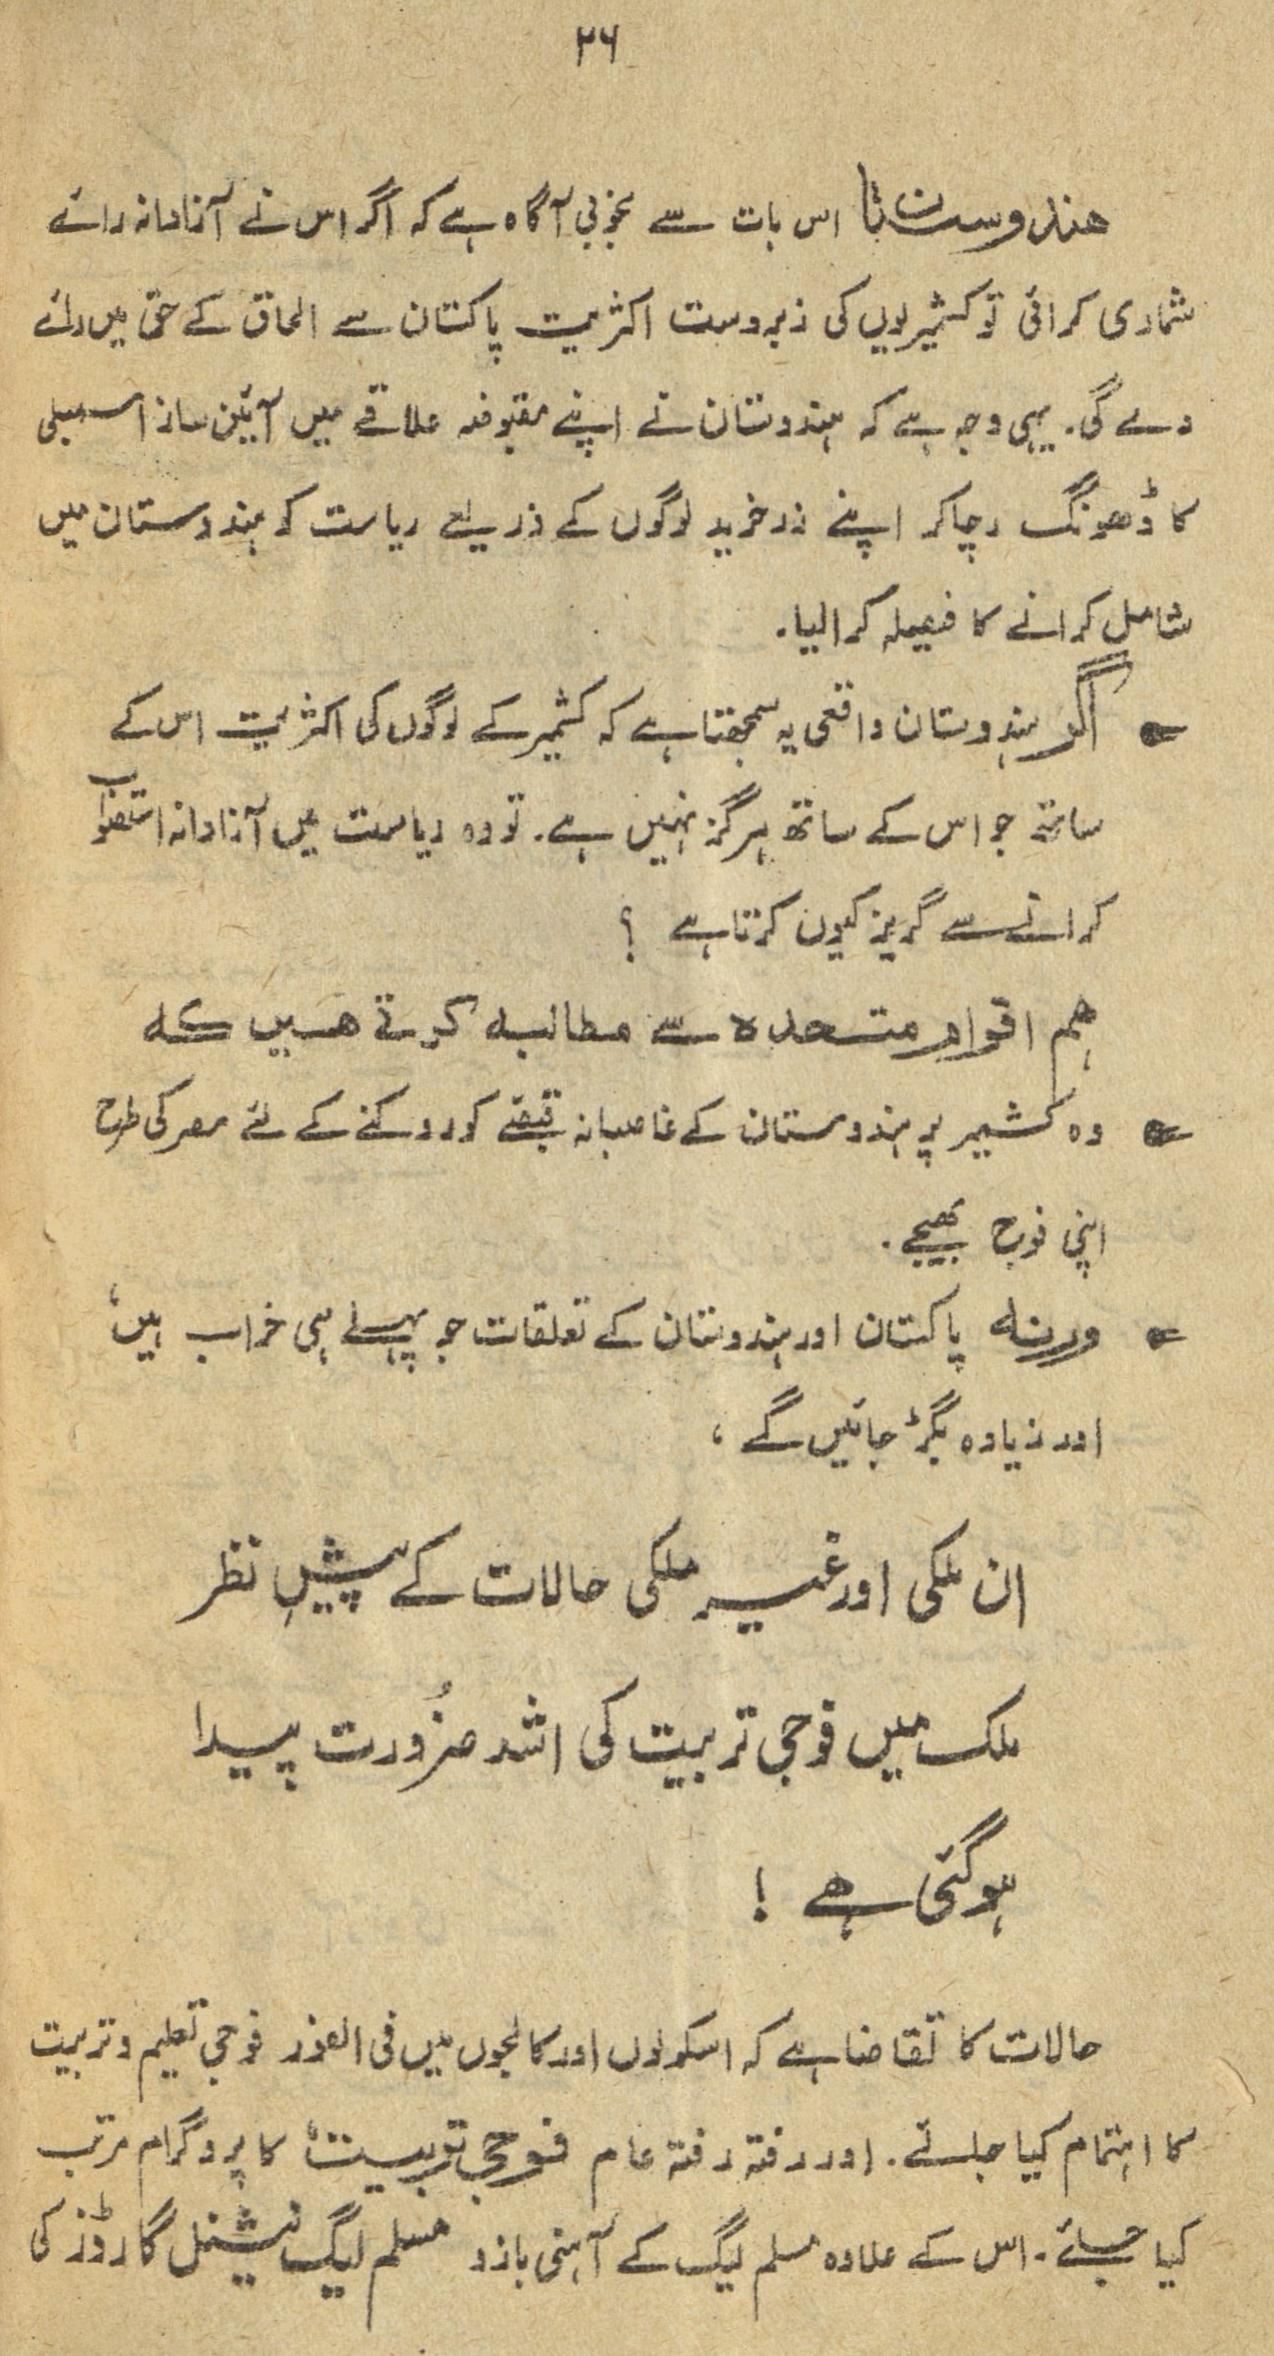 ۲۶
ھندوستان اس بات سے بخوبی آگاہ ہے کہ اگر اس نے آزادانہ رائے
شماری کرائی تو کشمیریوں کی زبردست اکثریت پاکستان سے الحاق کے حق میں رائے
دے گی۔ یہی وجہ ہے کہ ہندوستان نے اپنے مقبوضہ علاقے میں آئین ساز اسمبلی
کا ڈھونگ رچاکر اپنے زرخرید لوگوں کے ذریعے ریاست کو ہندوستان میں
شامل کرانے کا فیصلہ کرالیا۔
اگر ہندوستان واقعی یہ سمجھتا ہے کہ کشمیر کے لوگوں کی اکثریت اس کے
ساتھ جو اس کے ساتھ ہرگز نہیں ہے۔ تو وہ ریاست میں آزادانہ استصواب
کرانے سے گریز کیوں کرتا ہے ؟
ہم اقوام متحدہ سے مطالبہ کرتے ھیں کہ
وہ کشمیر پر ہندوستان کے غاصبانہ قبضے کو روکنے کے لئے مصر کی طرح
اپنی فوج بھیجے۔
ورنہ پاکستان اور ہندوستان کے تعلقات جو پہلے ہی خراب ہیں،
اور زیادہ بگڑ جائیں گے ،
ان ملکی اور غیر ملکی حالات کے پیشِ نظر
ملک میں فوجی تربیت کی اشد ضرُورت پیدا
ہوگئی ہے !
حالات کا تقاضا ہے کہ اسکولوں اور کالجوں میں فی الفور فوجی تعلیم و تربیت
کا اہتمام کیا جائے۔ اور رفتہ رفتہ عام فوجی تربیت کا پروگرام مرتب
کیا جائے۔ اس کے علاوہ مسلم لیگ کے آہنی بازو مسلم لیگ نیشنل گارڈز کی